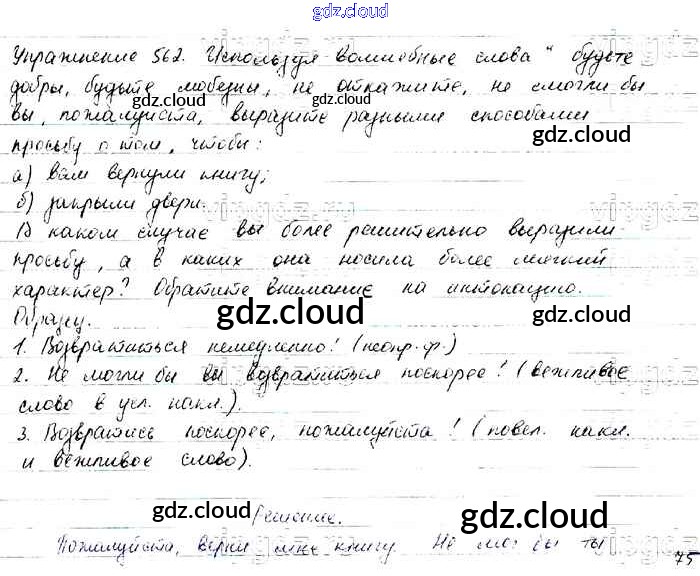 gdz.cloud
Упражнение 562. Используя волшебные слова " будьте
добры, будьте любезны, не откажите, не смогли бы
gdz.cloud
вы, пожалуйста, выразите разными способами
просьбу о том, чтобы:
gdz.cloud
а) вам вернули книгу;
б) закрыли двери.
gdz.cloud
В каком случае вы более решительно выразили
просьбу, а в каких она носила более мягкий
характер? Обратите внимание на интонацию.
gdz.cloud
Образец.
1. Возвратиться немедленно! (неопр. ф.)
2. Не могли бы вы возвратиться поскорее! (вежливое
слово в усл. накл.).
3. Возвратись поскорее, пожалуйста! (повел. накл.
и вежливое слово).
gdz.cloud
Решение.
Пожалуйста, верни мне книгу. Не мог бы ты
gdz.cloud
75